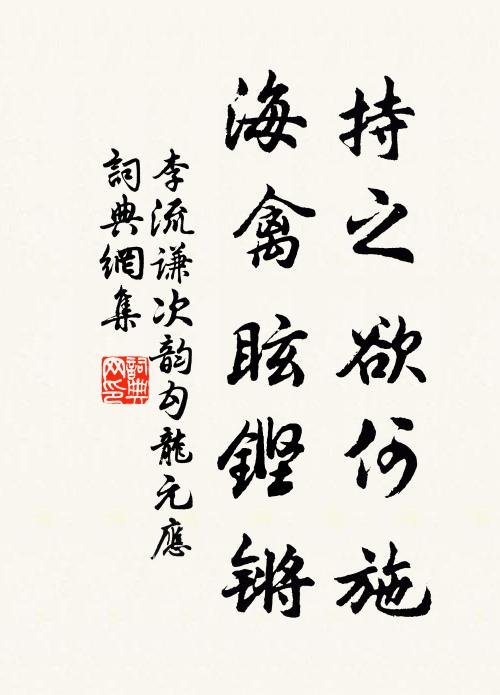 持之欲何施
海禽眩鏗锵
李流谦次韵勾龍元應
詞典網集
詞典网印